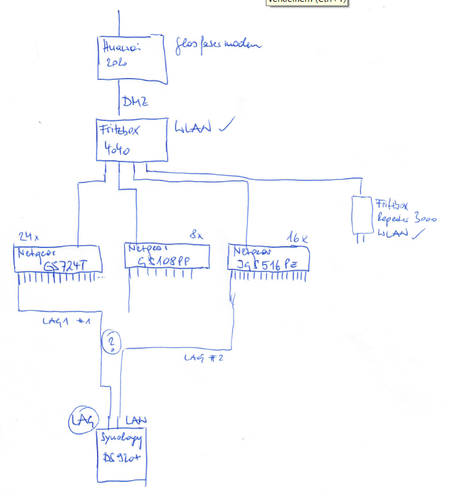 Huawei
2020
Glasfasermodem
DMZ
Fritzbox
4040
WLAN ✓
Fritzbox
Repeater 3000
WLAN ✓
24x
Netgear
GS724T
8x
Netgear
GS108PP
16x
Netgear
JGS516PE
LAG1 #1
?
LAG #2
LAG
LAN
Synology
DS920+